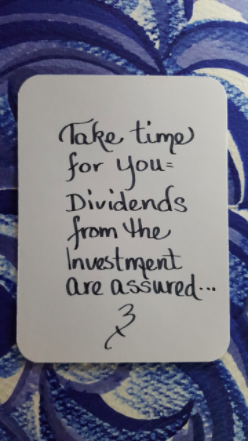 Take time
for you=
Dividends
from the
Investment
are assured...
3